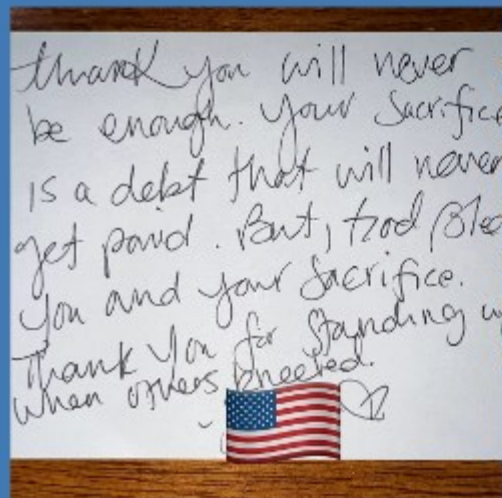 thank you will never
be enough. Your Sacrifice
is a debt that will never
get paid. But, God Ble
you and your Sacrifice.
Thank you for Standing u
when others kneeled.